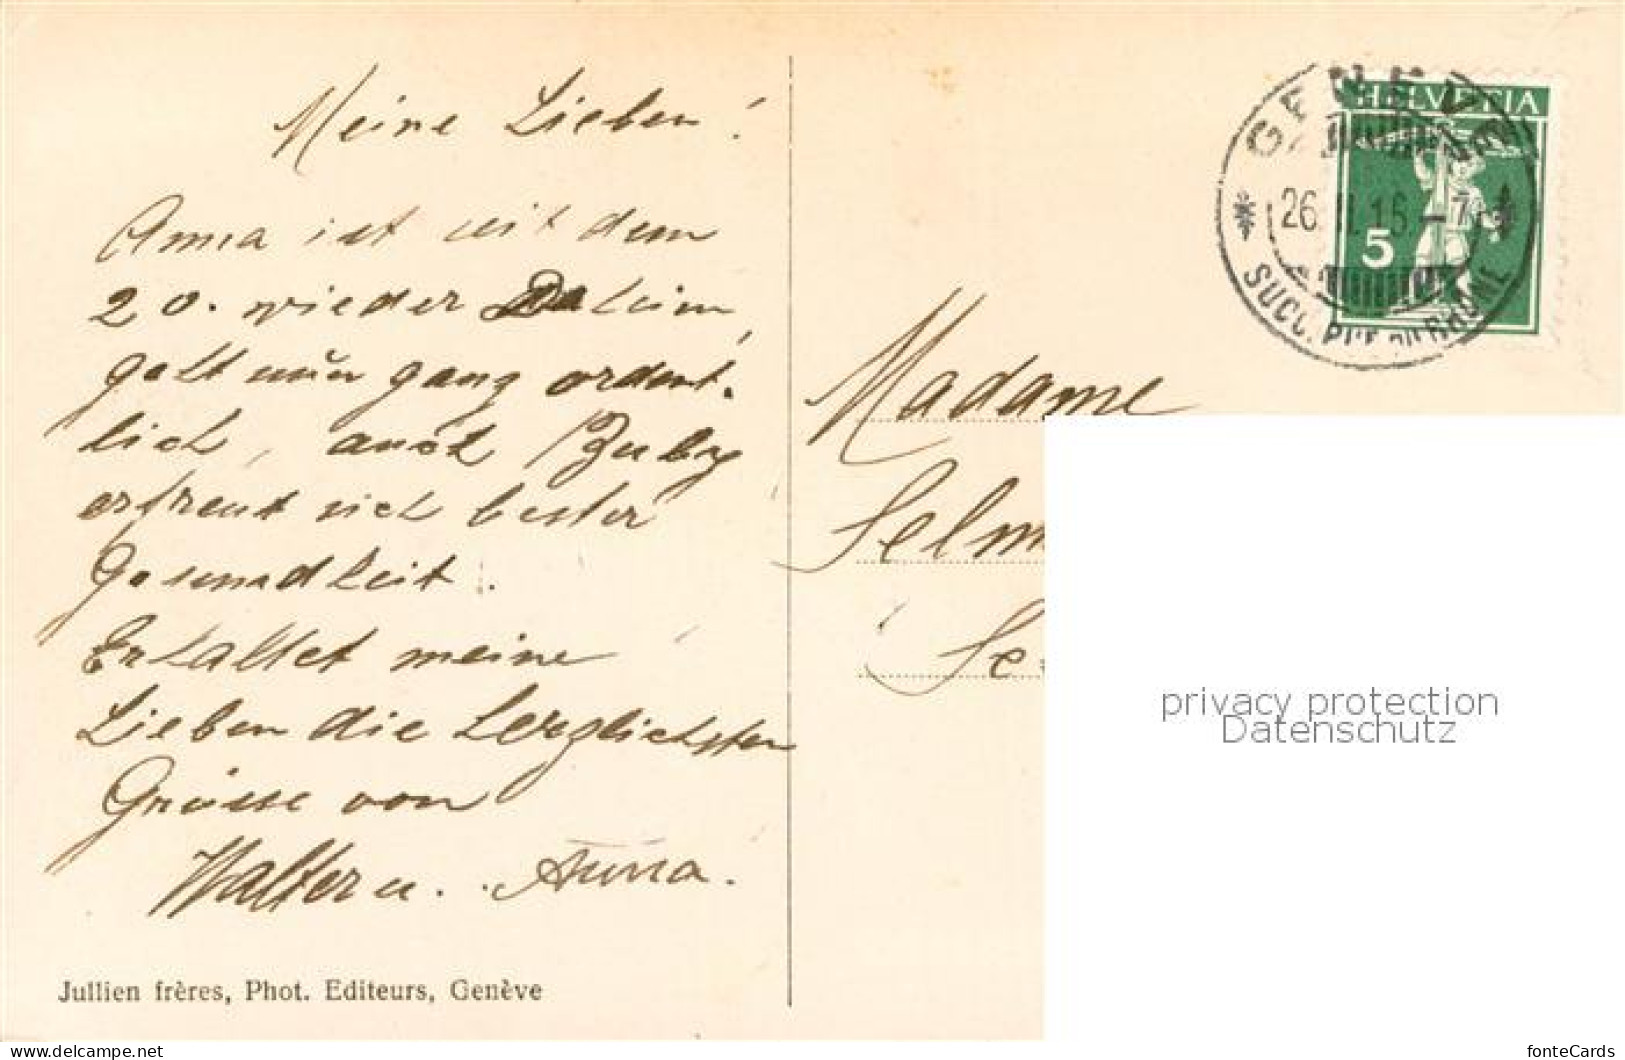 Meine Lieben!
Anna ist seit dem
20. wieder Daheim,
geht nun ganz ordent-
lich, auch Buby
erfreut sich bester
Gesundheit.
Erhaltet meine
Lieben die herzlichsten
Grüsse von
Walter u. Anna.
Jullien frères, Phot. Editeurs, Genève
HELVETIA
5
GENÈVE
26. 16. -7
SUCC. RUE DU RHONE
Madame
Selm
Se
privacy protection
Datenschutz
fonteCards
delcampe.net